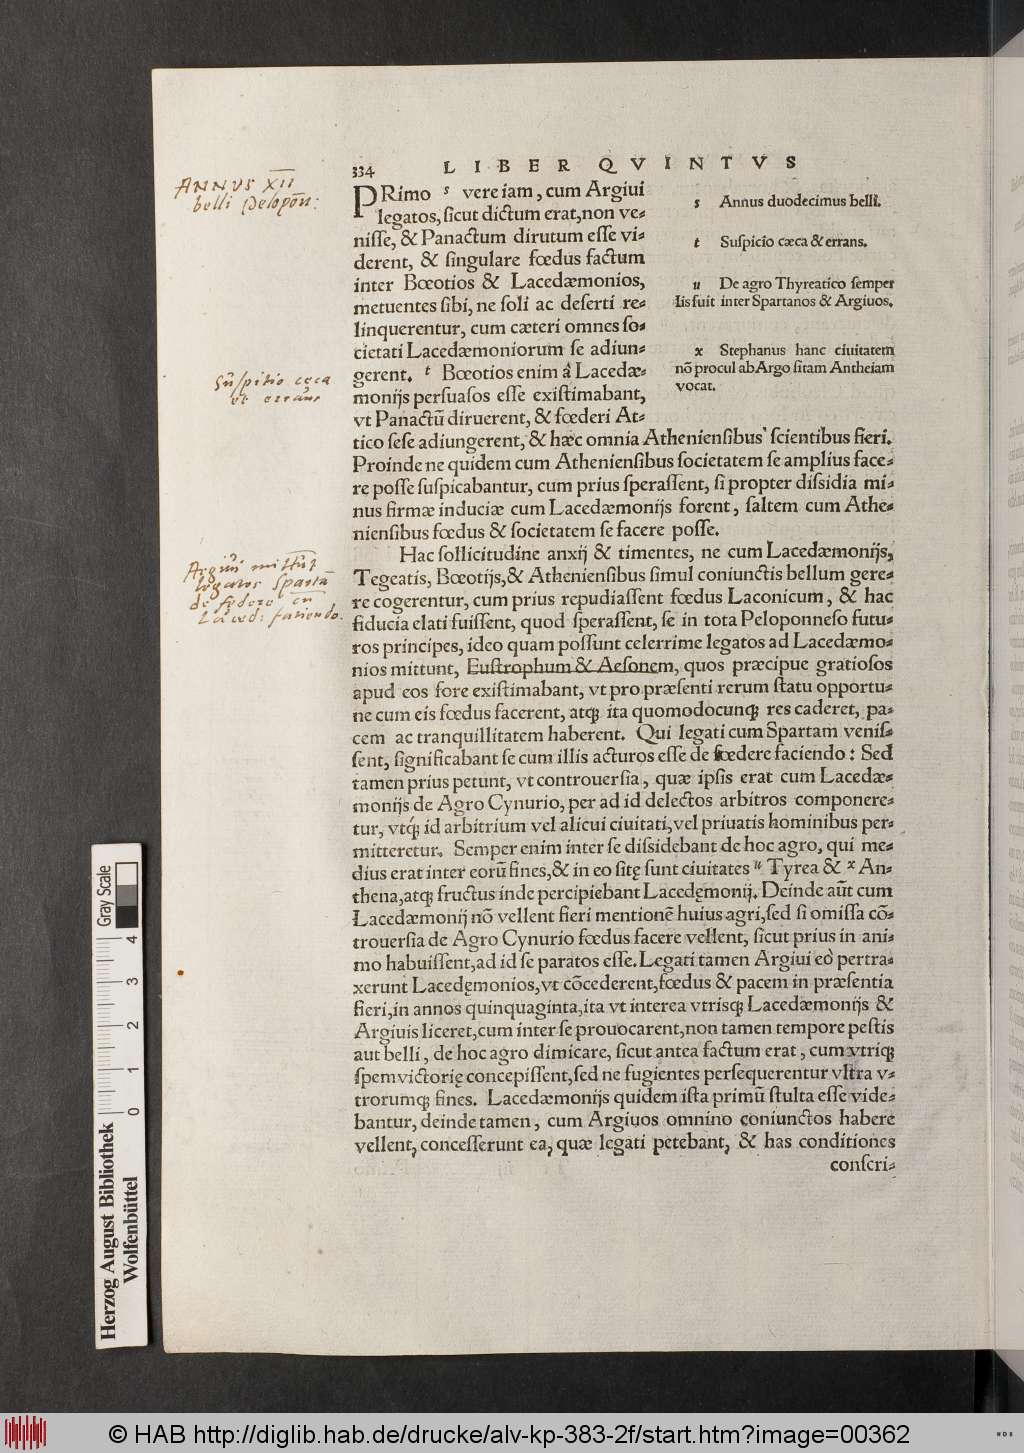 334 LIBER QVINTVS
ANNVS XII
belli Pelopōn:
PRimo s vere iam, cum Argiui
legatos, ſicut dictum erat, non ve⸗
niſſe, & Panactum dirutum eſſe vi⸗
derent, & ſingulare fœdus factum
inter Bœotios & Lacedæmonios,
metuentes ſibi, ne ſoli ac deſerti re⸗
linquerentur, cum cæteri omnes ſo⸗
cietati Lacedæmoniorum ſe adiun⸗
gerent. t Bœotios enim â Lacedæ⸗
monijs perſuaſos eſſe exiſtimabant,
vt Panactū diruerent, & fœderi At⸗
s Annus duodecimus belli.
t Suſpicio cæca & errans.
u De agro Thyreatico ſemper
lis fuit inter Spartanos & Argiuos.
x Stephanus hanc ciuitatem
nō procul ab Argo ſitam Antheiam
vocat.
Suſpitio ceca
et errans
tico ſeſe adiungerent, & hæc omnia Athenienſibus ſcientibus fieri.
Proinde ne quidem cum Athenienſibus ſocietatem ſe amplius face⸗
re poſſe ſuſpicabantur, cum prius ſperaſſent, ſi propter diſsidia mi⸗
nus firmæ induciæ cum Lacedæmonijs forent, ſaltem cum Athe⸗
nienſibus fœdus & ſocietatem ſe facere poſſe.
Hac ſollicitudine anxij & timentes, ne cum Lacedæmonijs,
Tegeatis, Bœotijs, & Athenienſibus ſimul coniunctis bellum gere⸗
re cogerentur, cum prius repudiaſſent fœdus Laconicum, & hac
fiducia elati fuiſſent, quod ſperaſſent, ſe in tota Peloponneſo futu⸗
ros principes, ideo quam poſſunt celerrime legatos ad Lacedæmo⸗
nios mittunt, Euſtrophum & Aeſonem, quos præcipue gratioſos
apud eos fore exiſtimabant, vt pro præſenti rerum ſtatu opportu⸗
ne cum eis fœdus facerent, atqꝫ ita quomodocunqꝫ res caderet, pa⸗
cem ac tranquillitatem haberent. Qui legati cum Spartam veniſ⸗
ſent, ſignificabant ſe cum illis acturos eſſe de fœdere faciendo: Sed
tamen prius petunt, vt controuerſia, quæ ipſis erat cum Lacedæ⸗
monijs de Agro Cynurio, per ad id delectos arbitros componere⸗
tur, vtqꝫ́ id arbitrium vel alicui ciuitati, vel priuatis hominibus per⸗
mitteretur. Semper enim inter ſe diſsidebant de hoc agro, qui me⸗
dius erat inter eorū fines, & in eo ſitę ſunt ciuitates u Tyrea & x An⸗
thena, atqꝫ fructus inde percipiebant Lacedęmonij. Deinde aūt cum
Lacedæmonij nō vellent fieri mentionē huius agri, ſed ſi omiſſa cō⸗
trouerſia de Agro Cynurio fœdus facere vellent, ſicut prius in ani⸗
mo habuiſſent, ad id ſe paratos eſſe. Legati tamen Argiui eò pertra⸗
xerunt Lacedęmonios, vt cōcederent, fœdus & pacem in præſentia
fieri, in annos quinquaginta, ita vt interea vtrisqꝫ Lacedæmonijs &
Argiuis liceret, cum inter ſe prouocarent, non tamen tempore peſtis
aut belli, de hoc agro dimicare, ſicut antea factum erat, cum vtriqꝫ
ſpem victorię concepiſſent, ſed ne fugientes perſequerentur vltra v⸗
trorumqꝫ fines. Lacedæmonijs quidem iſta primū ſtulta eſſe vide⸗
bantur, deinde tamen, cum Argiuos omnino coniunctos habere
vellent, conceſſerunt ea, quæ legati petebant, & has conditiones
conſcri⸗
Argiui mittūt
legatos Spartā
de fędere cū
Laced: faciendo.
Gray Scale
0 1 2 3 4
Herzog August Bibliothek
Wolfenbüttel
© HAB http://diglib.hab.de/drucke/alv-kp-383-2f/start.htm?image=00362